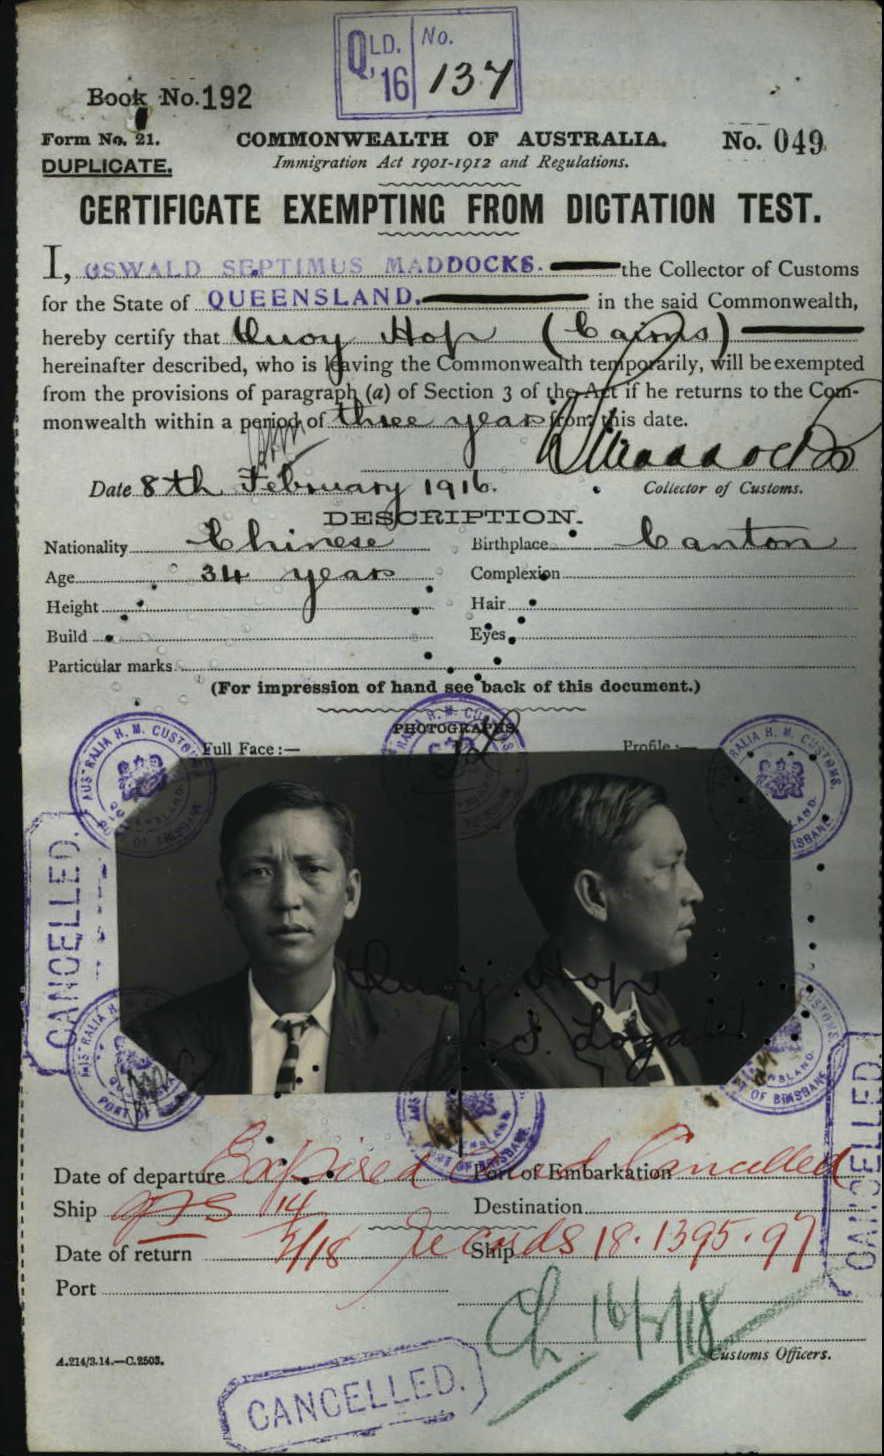 QLD. No.
16 137
Book No. 192
Form No. 21. COMMONWEALTH OF AUSTRALIA. No. 049
DUPLICATE. Immigration Act 1901-1912 and Regulations.
CERTIFICATE EXEMPTING FROM DICTATION TEST.
I, OSWALD SEPTIMUS MADDOCKS. the Collector of Customs
for the State of QUEENSLAND. in the said Commonwealth,
hereby certify that Quoy Hop (Cairns)
hereinafter described, who is leaving the Commonwealth temporarily, will be exempted
from the provisions of paragraph (a) of Section 3 of the Act if he returns to the Com-
monwealth within a period of three years from this date.
Maddocks
Date 8th February 1916. Collector of Customs.
DESCRIPTION.
Nationality Chinese Birthplace Canton
Age 34 years Complexion
Height Hair
Build Eyes
Particular marks
(For impression of hand see back of this document.)
PHOTOGRAPHS.
Full Face :— Profile :—
AUSTRALIA H. M. CUSTOMS.
PORT OF BRISBANE
CANCELLED.
Quoy Hop
S. Logan
Date of departure Expired and Cancelled Port of Embarkation
Ship Destination
Date of return Records 18.1395.97 Ship
Port
CANCELLED.
A.214/3.14.—C.2503. Customs Officers.
CANCELLED.